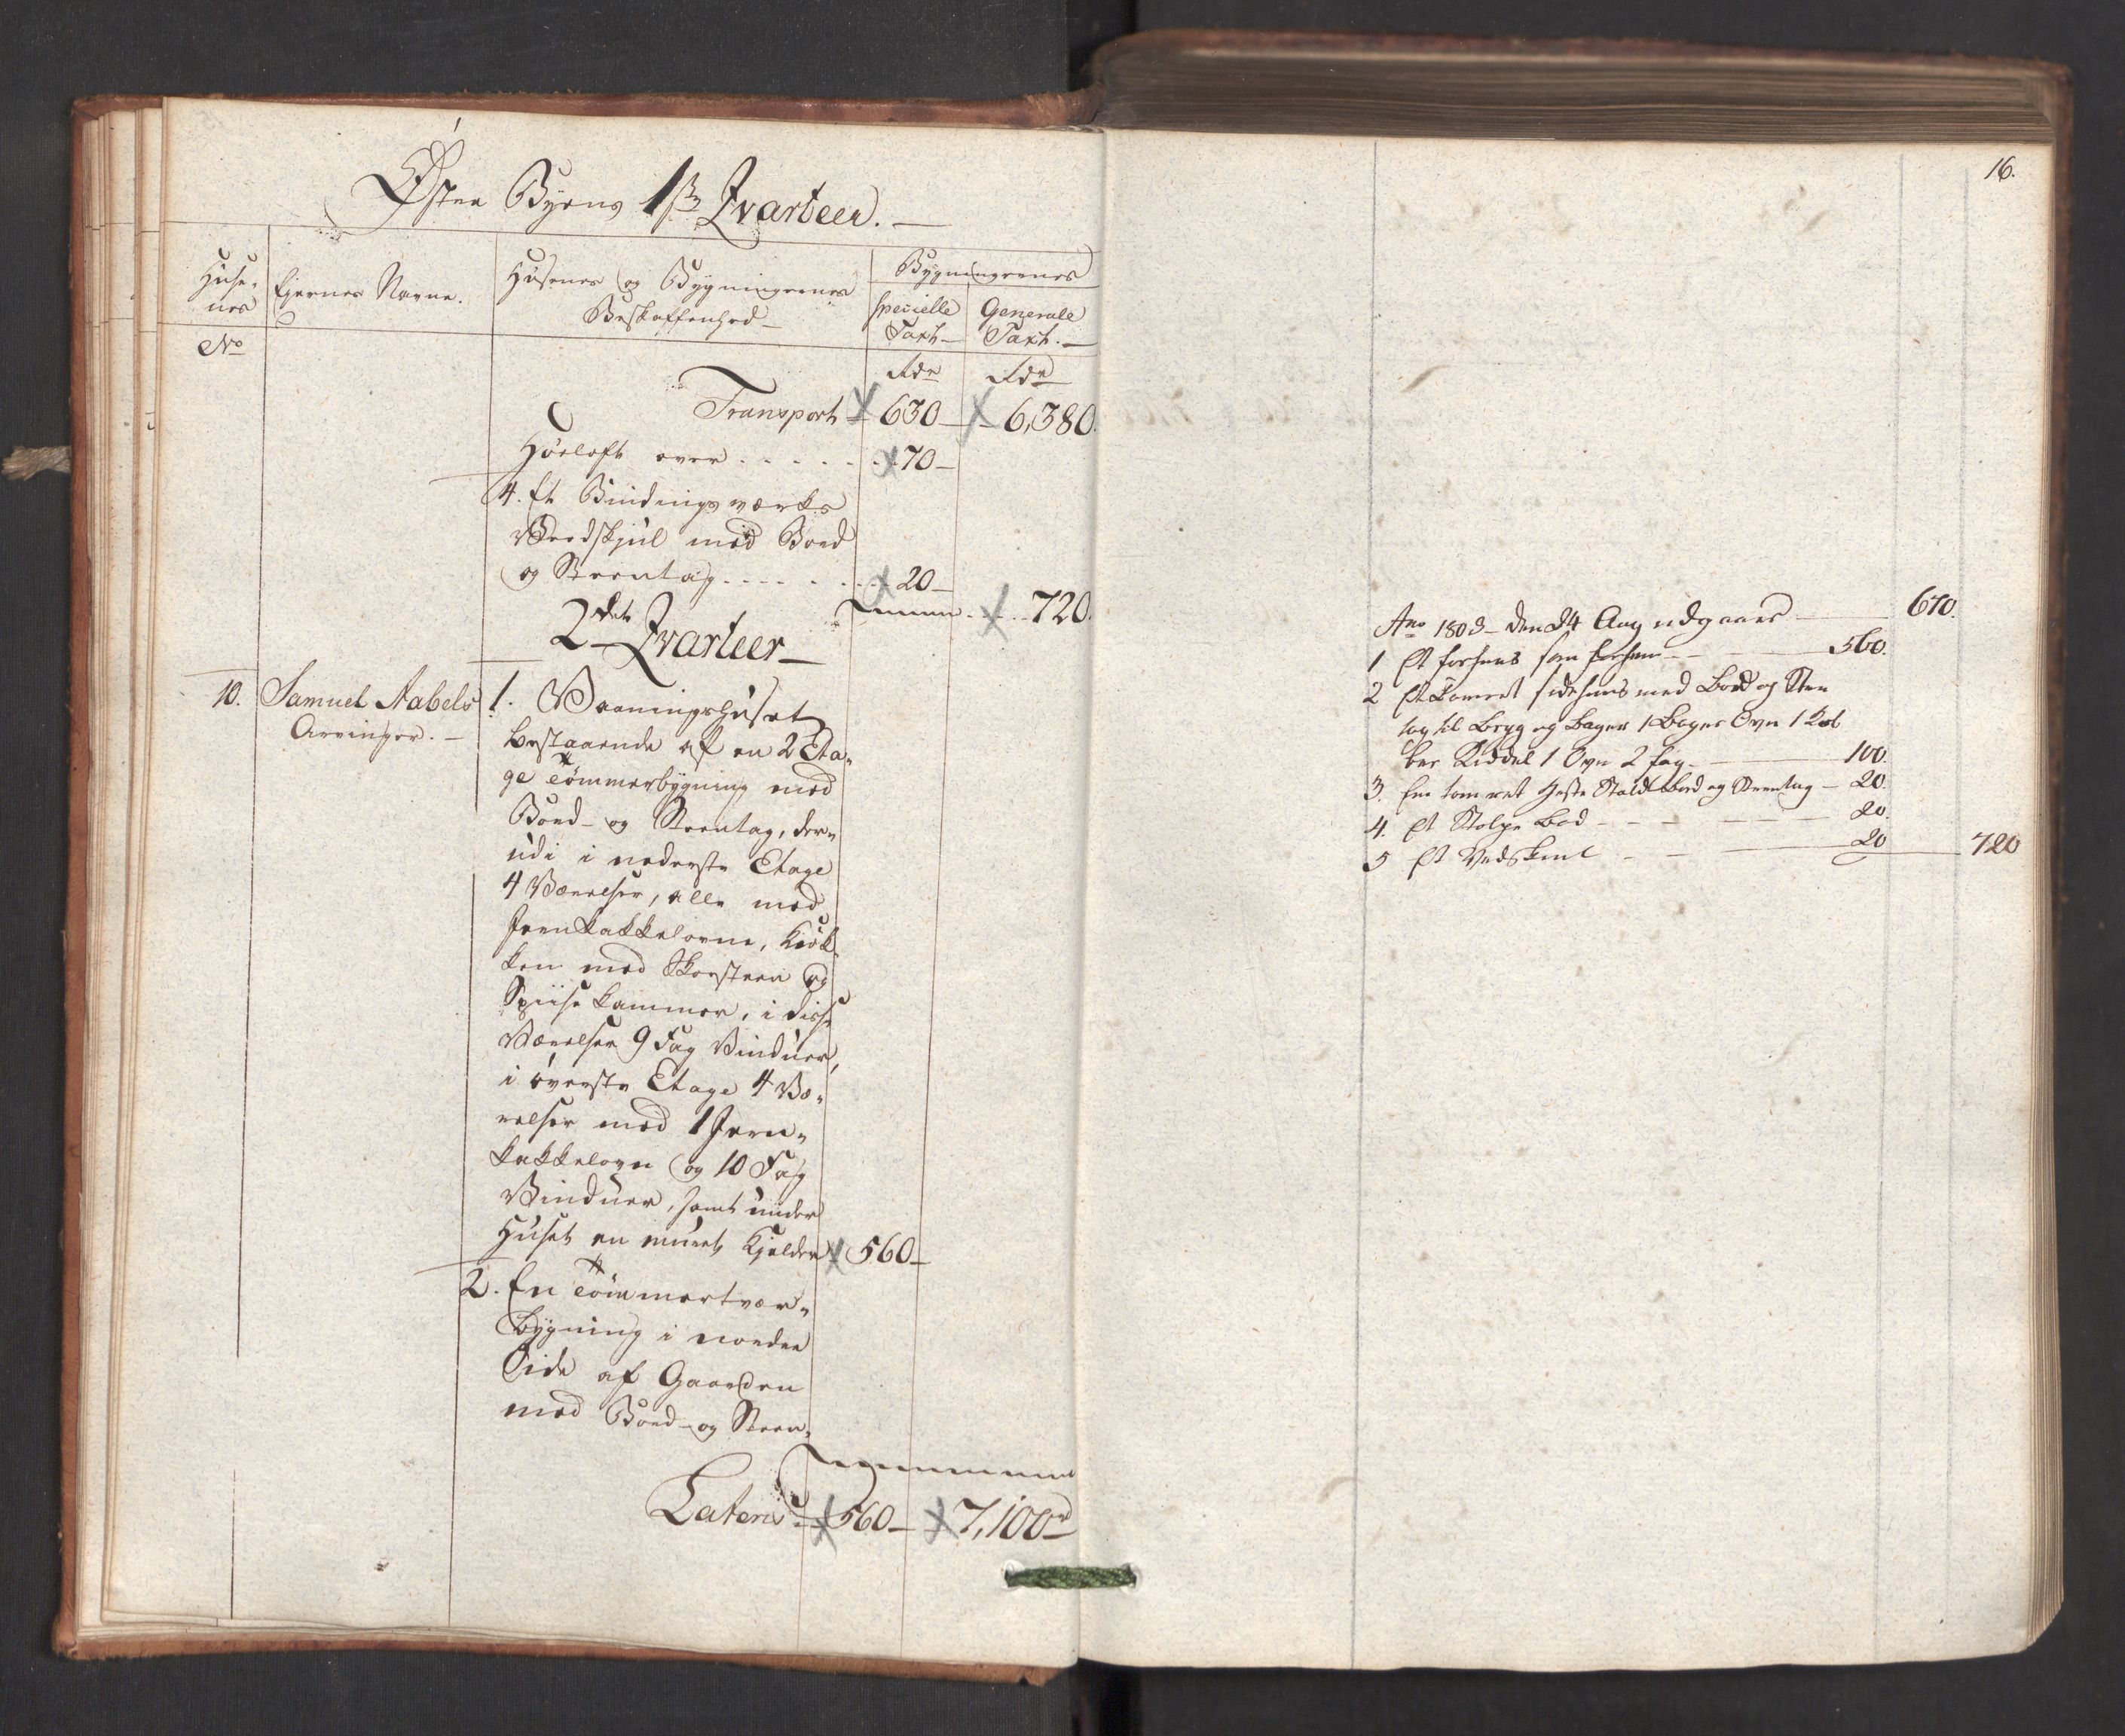 Øster Byens 1ste Qvarteer.
Huse-
nes
No
Ejernes Navne.
Husenes og Bygningernes
Beskaffenhed
Bygningernes
specielle
Taxt
Generale
Taxt.
Rdr
Rdr
Transport 630 6,380.
Høeloft over . . . . . 70
4. Et Bindingsværks
Vedskjul med Bord
og Steentag . . . . . 20
720.
2det Qvarteer
10. Samuel Aabels
Arvinger.
1. Vaaningshuset
bestaaende af en 2 Eta-
ge Tømmerbygning med
Bord- og Steentag, der-
udi i nederste Etage
4 Værelser, alle med
Jernkakkelovne, Kiøk-
ken med Skorsteen og
Spiisekammer, i disse
Værelser 9 Fag Vinduer,
i øverste Etage 4 Væ-
relser med 1 Jern-
kakkelovn og 10 Fag
Vinduer, samt under
Huset en muret Kjelder 560
2. En Tømmertvær-
bygning i norden
Side af Gaarden
med Bord- og Steen-
Lateris 560 7,100rd
16.
Ano 1803 den 24 Aug udgaaer 670.
1 Et forhuus som forhen 560.
2 Et tømret sidehuus med Bord og Sten
tag til Bryg og Bager 1 Bager Ovn 1 Kob
ber Kiddel 1 Ovn 2 fag 100.
3. En tømret Heste Stald bord og Steentag 20.
4. Et Stolpe Bod 20.
5 Et Vedskiul 20 720